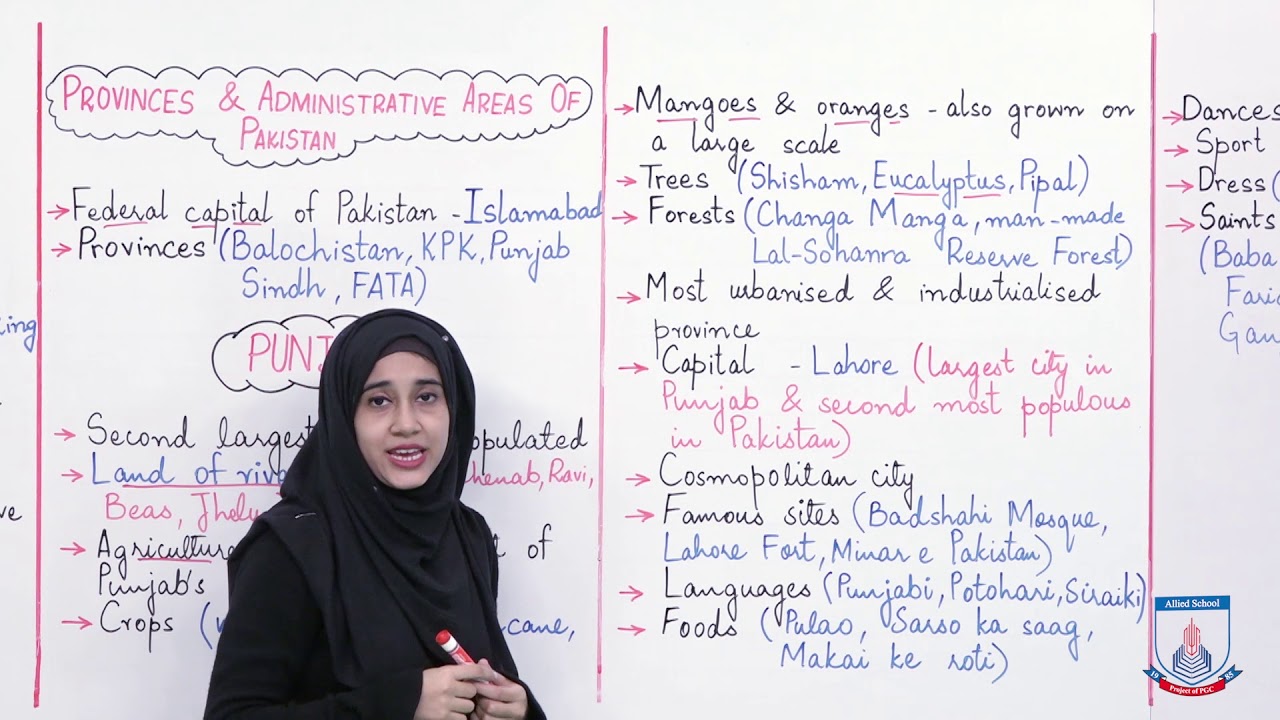 PROVINCES & ADMINISTRATIVE AREAS OF
PAKISTAN
→ Federal capital of Pakistan - Islamabad
→ Provinces (Balochistan, KPK, Punjab
Sindh, FATA)
→ Second largest
→ Land of
Ravi,
Beas,
→ Agriculture of
Punjab's
→ Crops
→ Mangoes & oranges - also grown on
a large scale
→ Trees (Shisham, Eucalyptus, Pipal)
→ Forests (Changa Manga, man-made
Lal-Sohanra Reserve Forest)
→ Most urbanised & industrialised
province
→ Capital - Lahore (largest city in
Punjab & second most populous
in Pakistan)
→ Cosmopolitan city
→ Famous sites (Badshahi Mosque,
Lahore Fort, Minar e Pakistan)
→ Languages (Punjabi, Potohari, Siraiki)
→ Foods (Pulao, Sarso ka saag,
Makai ke roti)
→ Dances
→ Sport
→ Dress (
→ Saints
(Baba
Allied School
19 85
Project of PGC